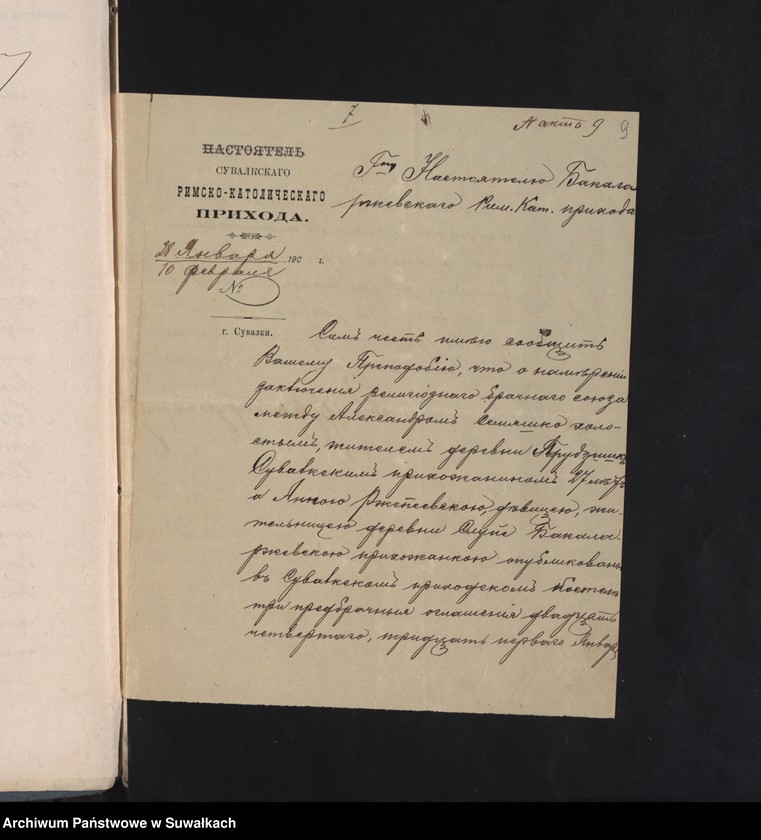 7
N акта 9
9
НАСТОЯТЕЛЬ
СУВАЛКСКАГО
РИМСКО-КАТОЛИЧЕСКАГО
ПРИХОДА.
28 Января
10 февраля 190 г.
№
г. Сувалки.
Гну Настоятелю Бакала
ржевскаго Рим. Кат. прихода
Симъ честь имѣю сообщить
Вашему Преподобію, что о намѣреніи
заключенія религіознаго брачнаго союза
между Александромъ Семяшко холо-
стымъ, жителемъ деревни
Сувалкскимъ прихожаниномъ 27 лѣтъ
и Анною Ржепевскою, дѣвицею, жи-
тельницею деревни Слупе Бакала
ржевскою прихожанкою опубликованы
въ Сувалкскомъ приходскомъ Костелѣ
три предбрачныя оглашенія двадцать
четвертаго, тридцать перваго Января
Archiwum Państwowe w Suwałkach